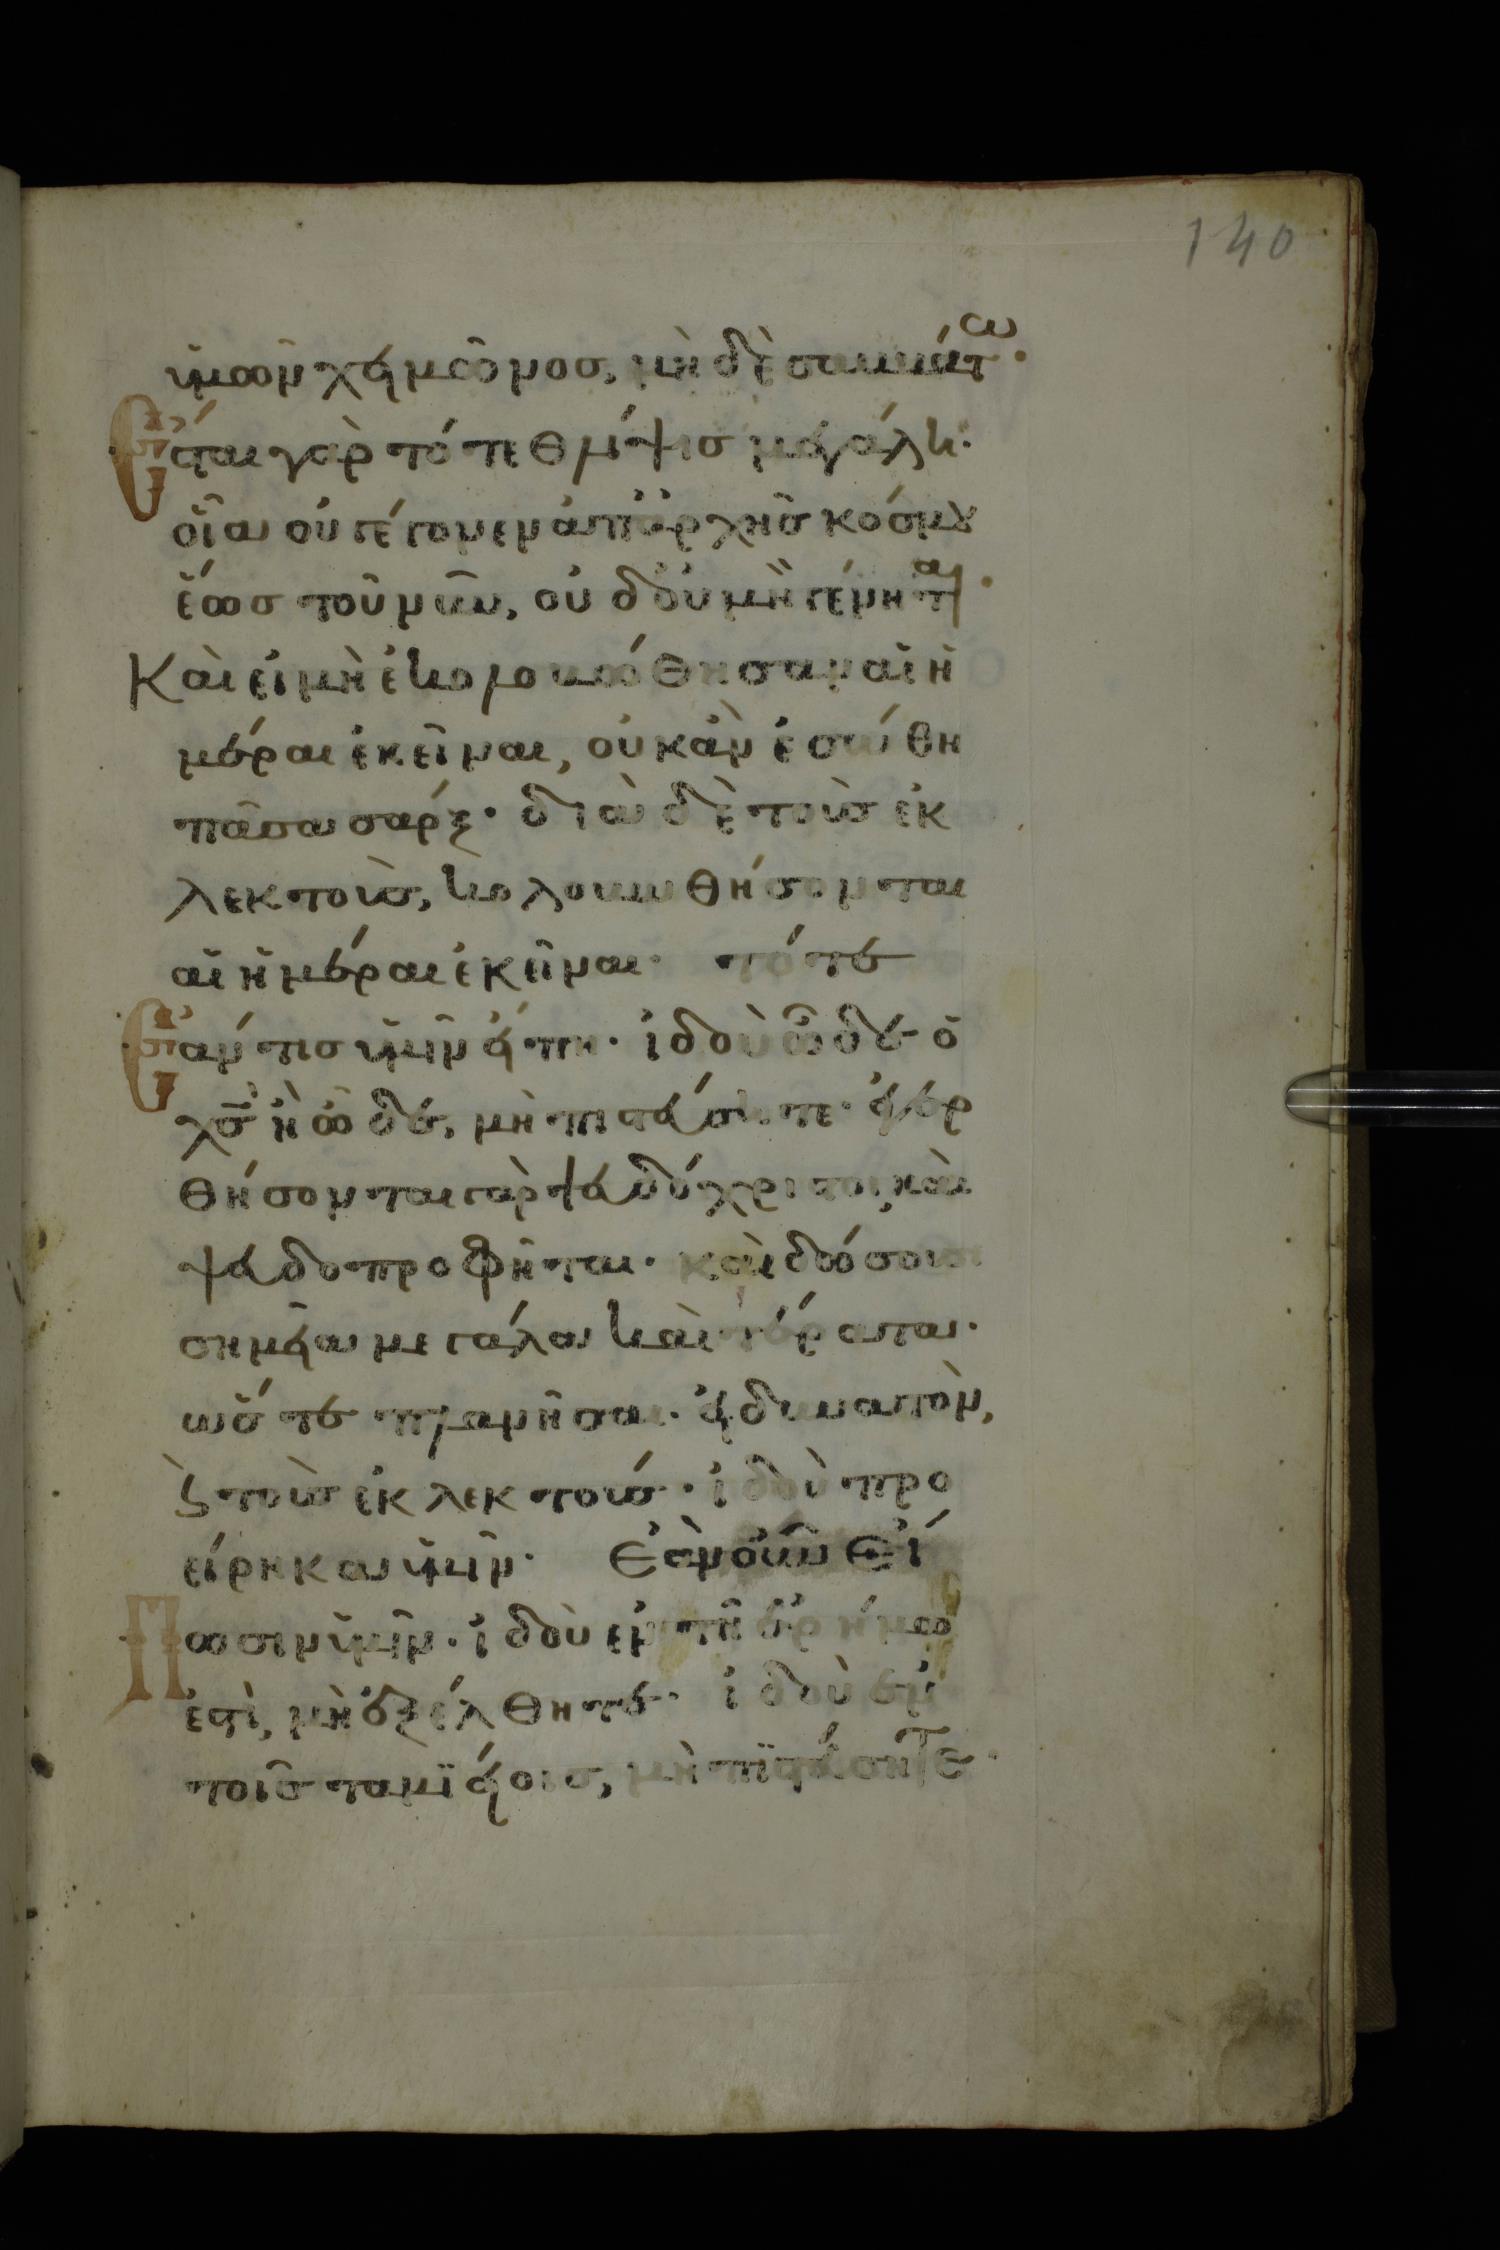 140
ὑμῶν χειμῶνος, μὴ δὲ σαββάτω·
Ἔσται γὰρ τότε θλίψις μεγάλη·
οἵα οὐ γέγονεν ἀπ' ἀρχῆς κόσμου
ἕως τοῦ νῦν, οὐδ' οὐ μὴ γένηται·
Καὶ εἰ μὴ ἐκολοβώθησαν αἱ ἡ
μέραι ἐκεῖναι, οὐκ ἂν ἐσώθη
πᾶσα σάρξ· διὰ δὲ τοὺς ἐκ
λεκτοὺς, κολοβωθήσονται
αἱ ἡμέραι ἐκεῖναι· τότε
Ἐάν τις ὑμῖν είπη· ἰδοὺ ὧδε ὁ
χς ἢ ὧδε, μὴ πιστεύσητε· ἐγερ
θήσονται γὰρ ψευδόχριστοι, καὶ
ψευδοπροφῆται· καὶ δώσουσι
σημεῖα μεγάλα καὶ τέρατα·
ὥστε πλανῆσαι· εἰ δυνατὸν,
ϗ τοὺς ἐκλεκτούς· ἰδοὺ προ
είρηκα ὑμῖν· Ἐὰν οὖν εἴ
Πωσιν ὑμῖν· ἰδοὺ ἐν τῆ ἐρήμω
ἐστὶ, μὴ ἐξέλθητε· ἰδοὺ ἐν
τοῖς ταμϊείοις, μὴ πϊστεύσητε·